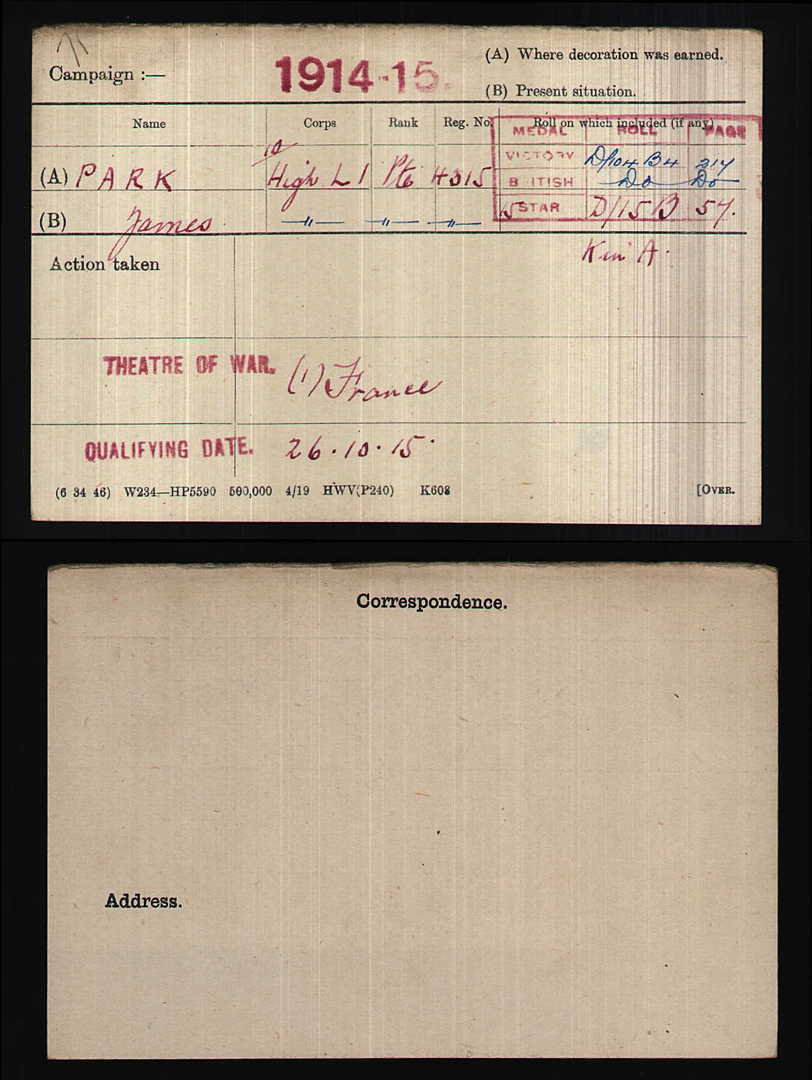 (A) Where decoration was earned.
Campaign :— 1914-15.
(B) Present situation.
Name Corps Rank Reg. No. Roll on which included (if any)
MEDAL ROLL PAGE
(A) PARK 10 High L I Pte 4315 VICTORY D/104 B4 317
BRITISH Do Do
(B) James —"— —"— —"— 15 STAR D/15 B 57.
Action taken
K in A.
THEATRE OF WAR. (1) France
QUALIFYING DATE. 26.10.15.
(6 34 46) W234—HP5590 500,000 4/19 HWV(P240) K608 [OVER.
Correspondence.
Address.